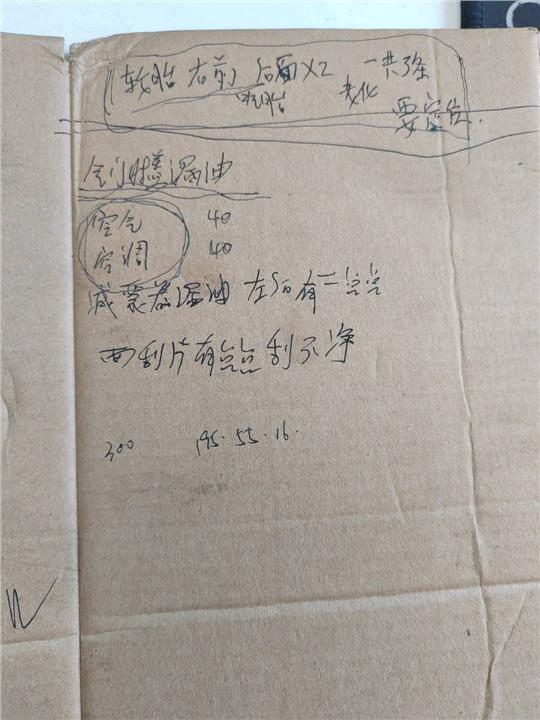 软胎 右前 后面X2 一共3条
旺胎 老化
要定位.
漏油
空气 40
空调 40
减震器漏油 左后有一点点
两刮片有点点刮不净
300 195.55.16.